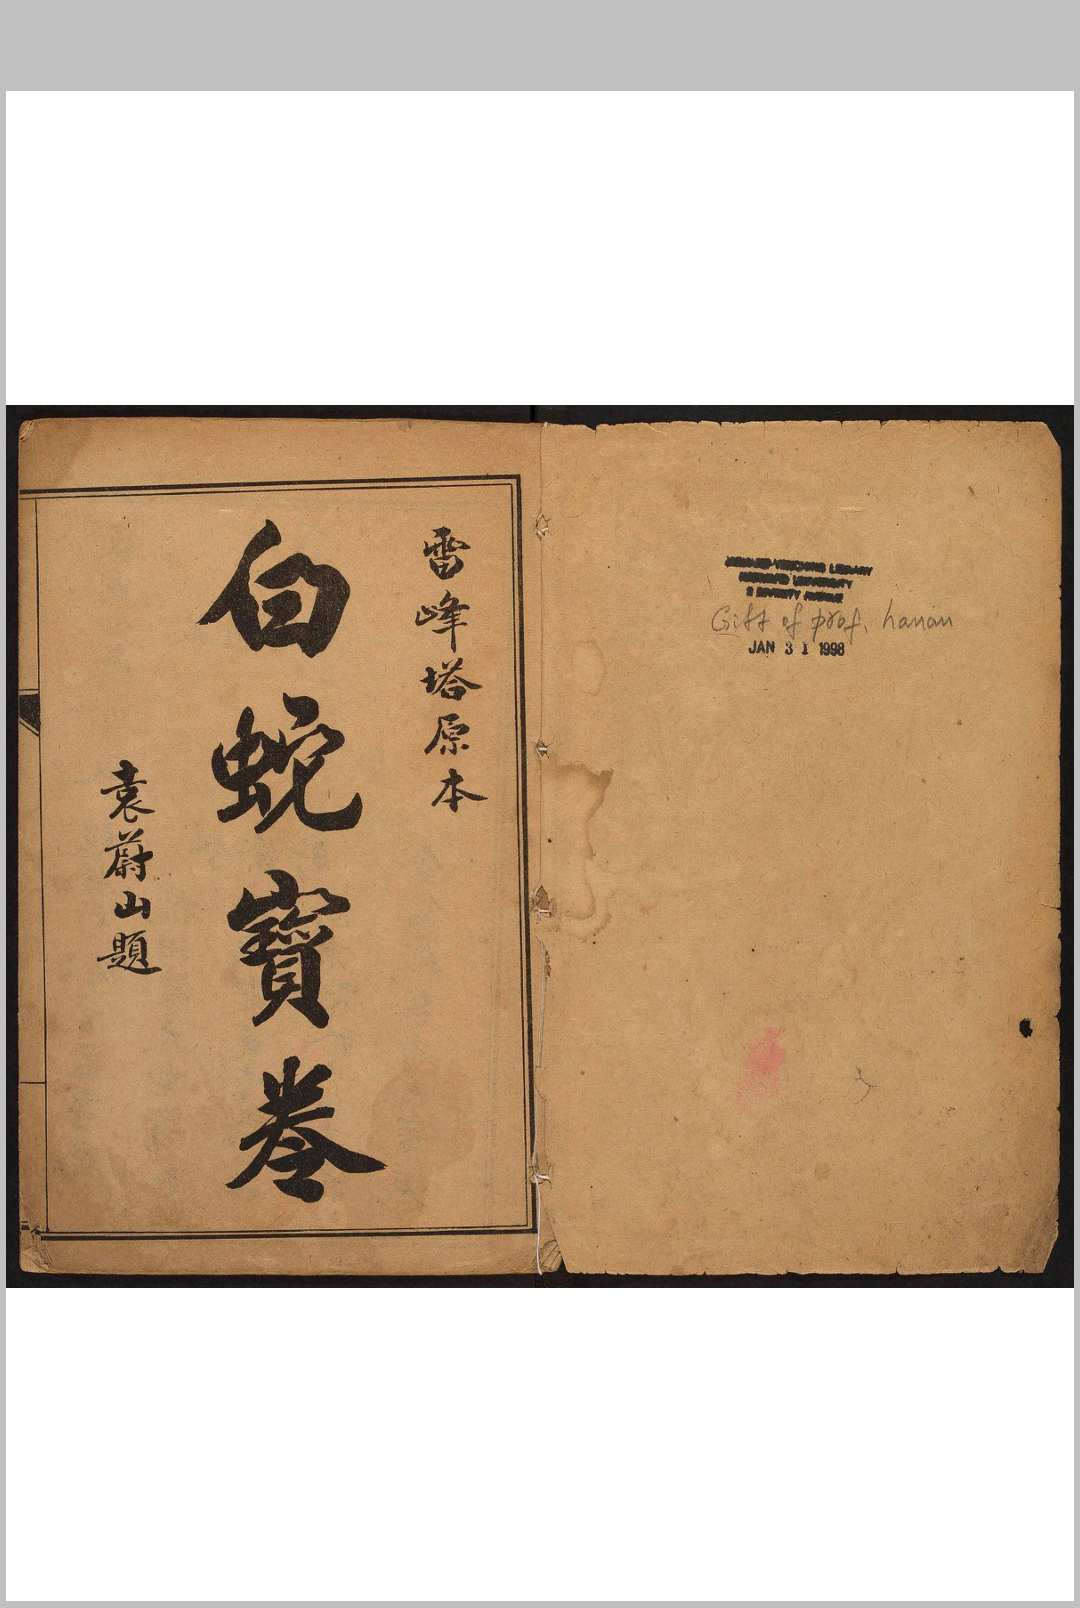 雷峰塔原本
白蛇寶卷
袁蔚山題
HARVARD-YENCHING LIBRARY
HARVARD UNIVERSITY
2 DIVINITY AVENUE
Gift of prof. hanan
JAN 31 1998